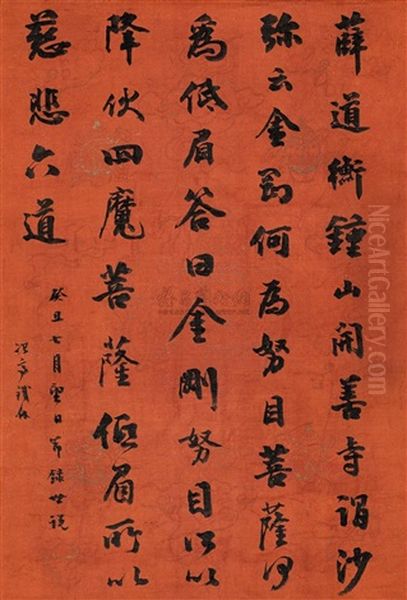 薛道衡鍾山開善寺謂沙
弥云金剛何為努目菩薩何
為低眉答曰金剛努目所以
降伏四魔菩薩低眉所以
慈悲六道
癸丑七月望日節錄世説
冶亭鐵保
NiceArtGallery.com